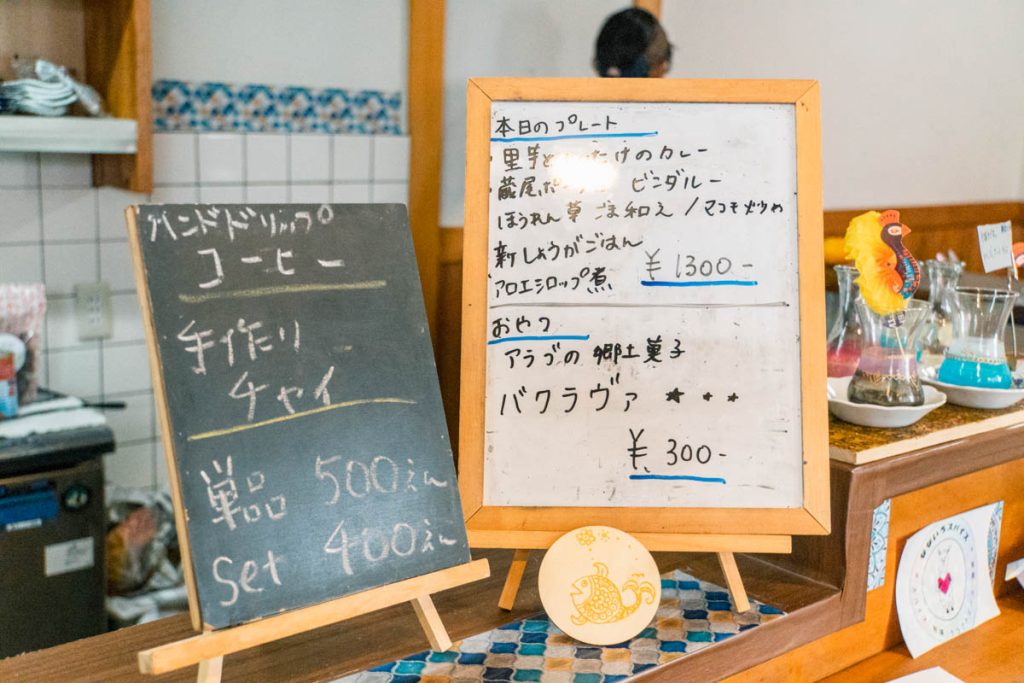 ハンドドリップ
コーヒー
手作り
チャイ
単品 500えん
Set 400えん
本日のプレート
・里芋と たけのカレー
・蔵尾ポーク ビンダルー
ほうれん草ごま和え / マコモ炒め
新しょうがごはん
アロエシロップ煮 ¥1300-
おやつ
アラブの郷土菓子
バクラヴァ
¥300-